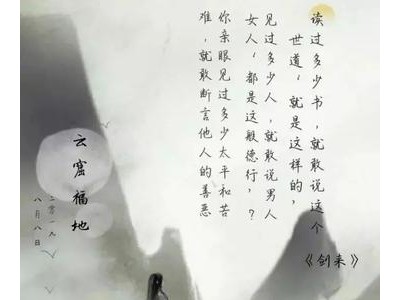 读过多少书，就敢说这个
世道，就是这样的，
见过多少人，就敢说男人
女人，都是这般德行，？
你亲眼见过多少太平和苦
难，就敢断言他人的善恶
《剑来》
云窟福地
二零一九
八月八日